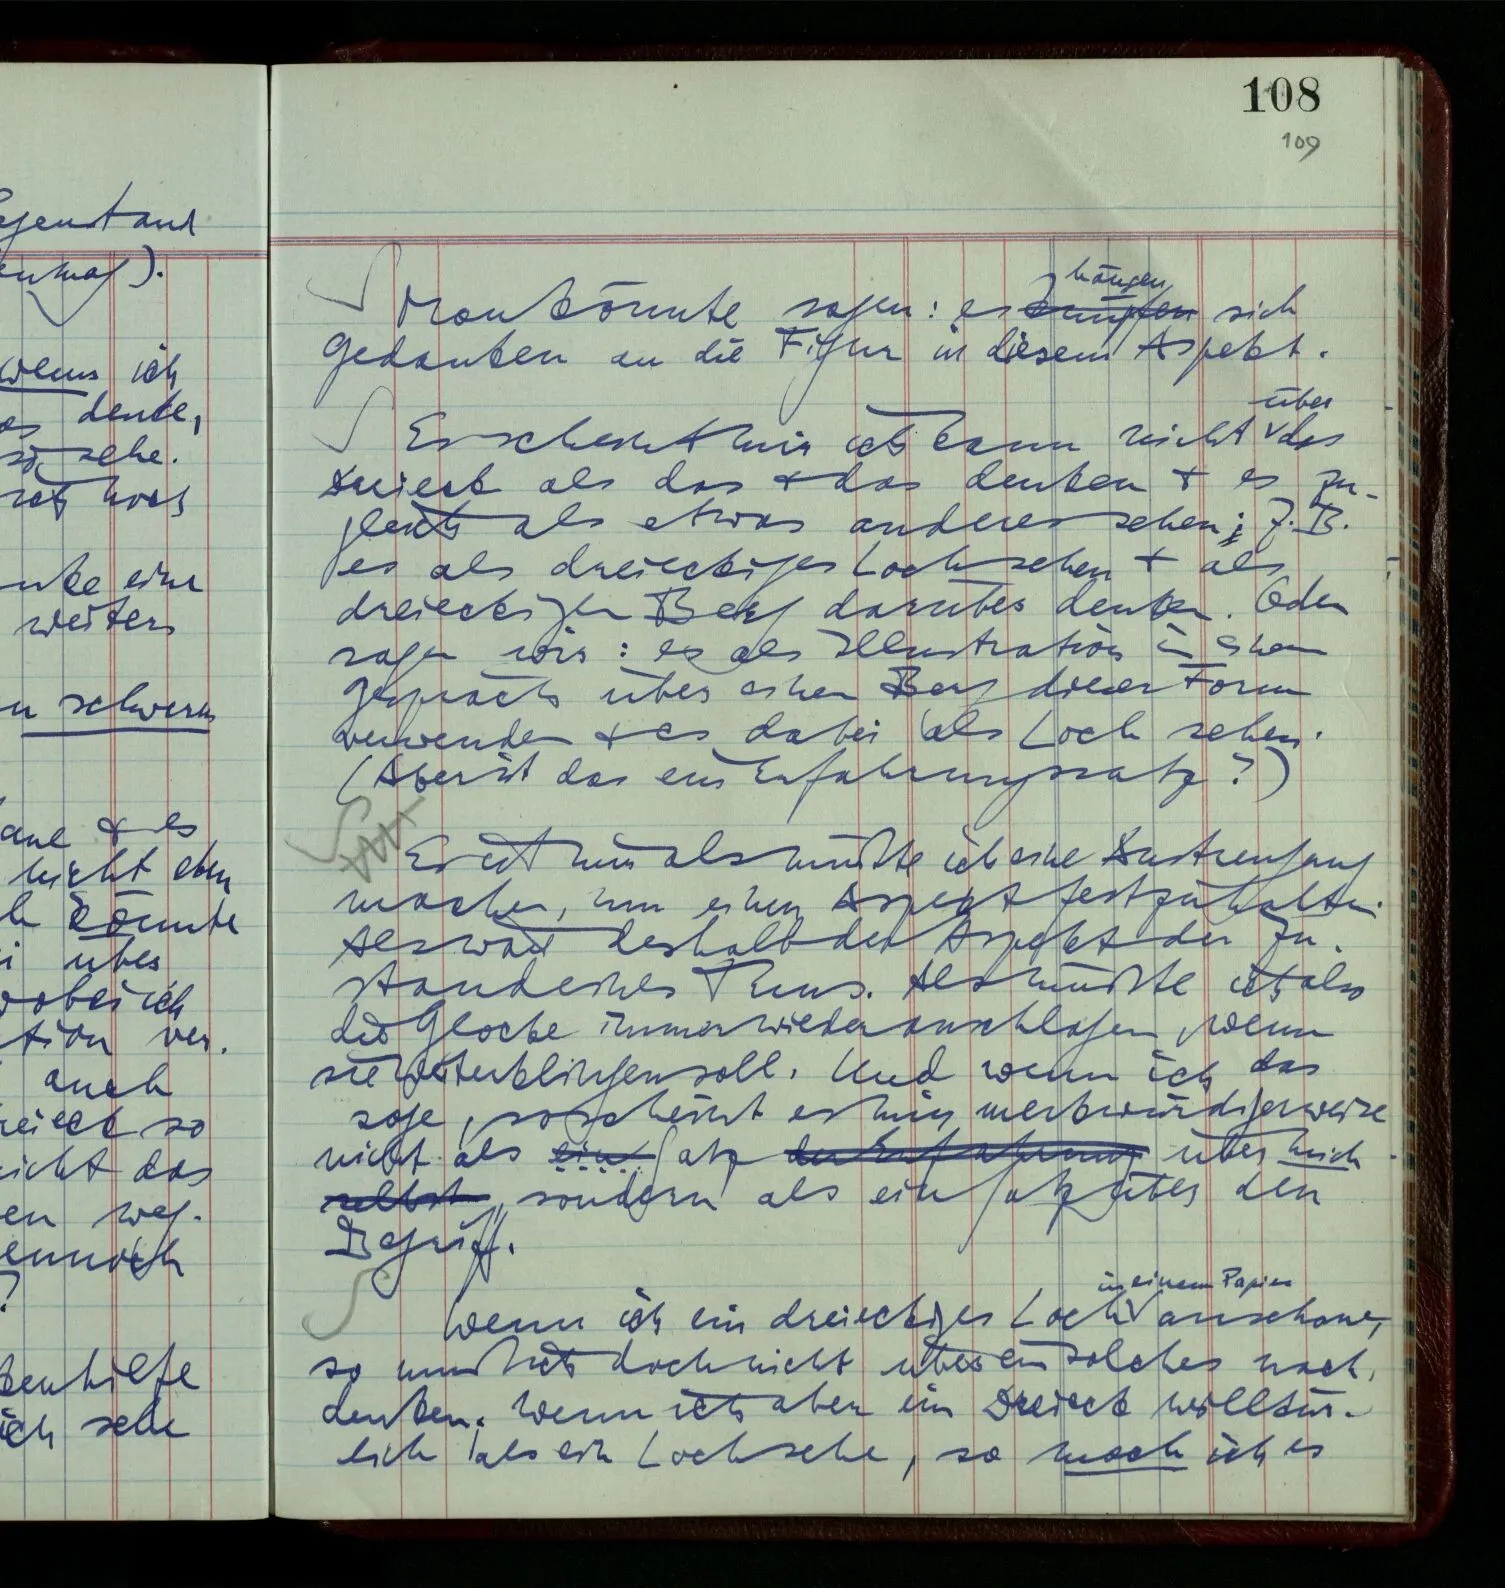 108
109
egenstand
).
wenn ich
es denke,
so sehe.
noch
nke eine
weiters
n schwerm
ane & es
nicht eben
könnte
i über
wobei ich
tion ver-
auch
reieck so
nicht das
en weg-
ennoch
?
kenhilfe
ich sehe
Man könnte sagen: es knüpfen hängen sich
Gedanken an die Figur in diesem Aspekt.
Es scheint mir ich kann nicht über das
Dreieck als das & das denken & es zu-
gleich als etwas anderes sehen; z.B.
es als dreieckiges Loch sehen & als
dreieckigen Berg darüber denken. Oder
sagen wir: es als Illustration in einem
Gespräch über einen Berg dieser Form
verwenden & es dabei als Loch sehen.
(Aber ist das ein Erfahrungssatz?)
Es ist mir als müßte ich eine Anstrengung
machen, um einen Aspekt festzuhalten.
Als wäre deshalb der Aspekt der Zu-
stand eines Tuns. Als müßte ich also
die Glocke immer wieder anschlagen, wenn
sie weiterklingen soll. Und wenn ich das
sage, so scheint es mir merkwürdigerweise
nicht als ein Satz der Erfahrung über mich
selbst, sondern als ein Satz über den
Begriff.
Wenn ich ein dreieckiges Loch in einem Papier anschaue,
so muß ich doch nicht über ein solches nach-
denken. Wenn ich aber ein Dreieck willkür-
lich als ein Loch sehe, so mach ich es